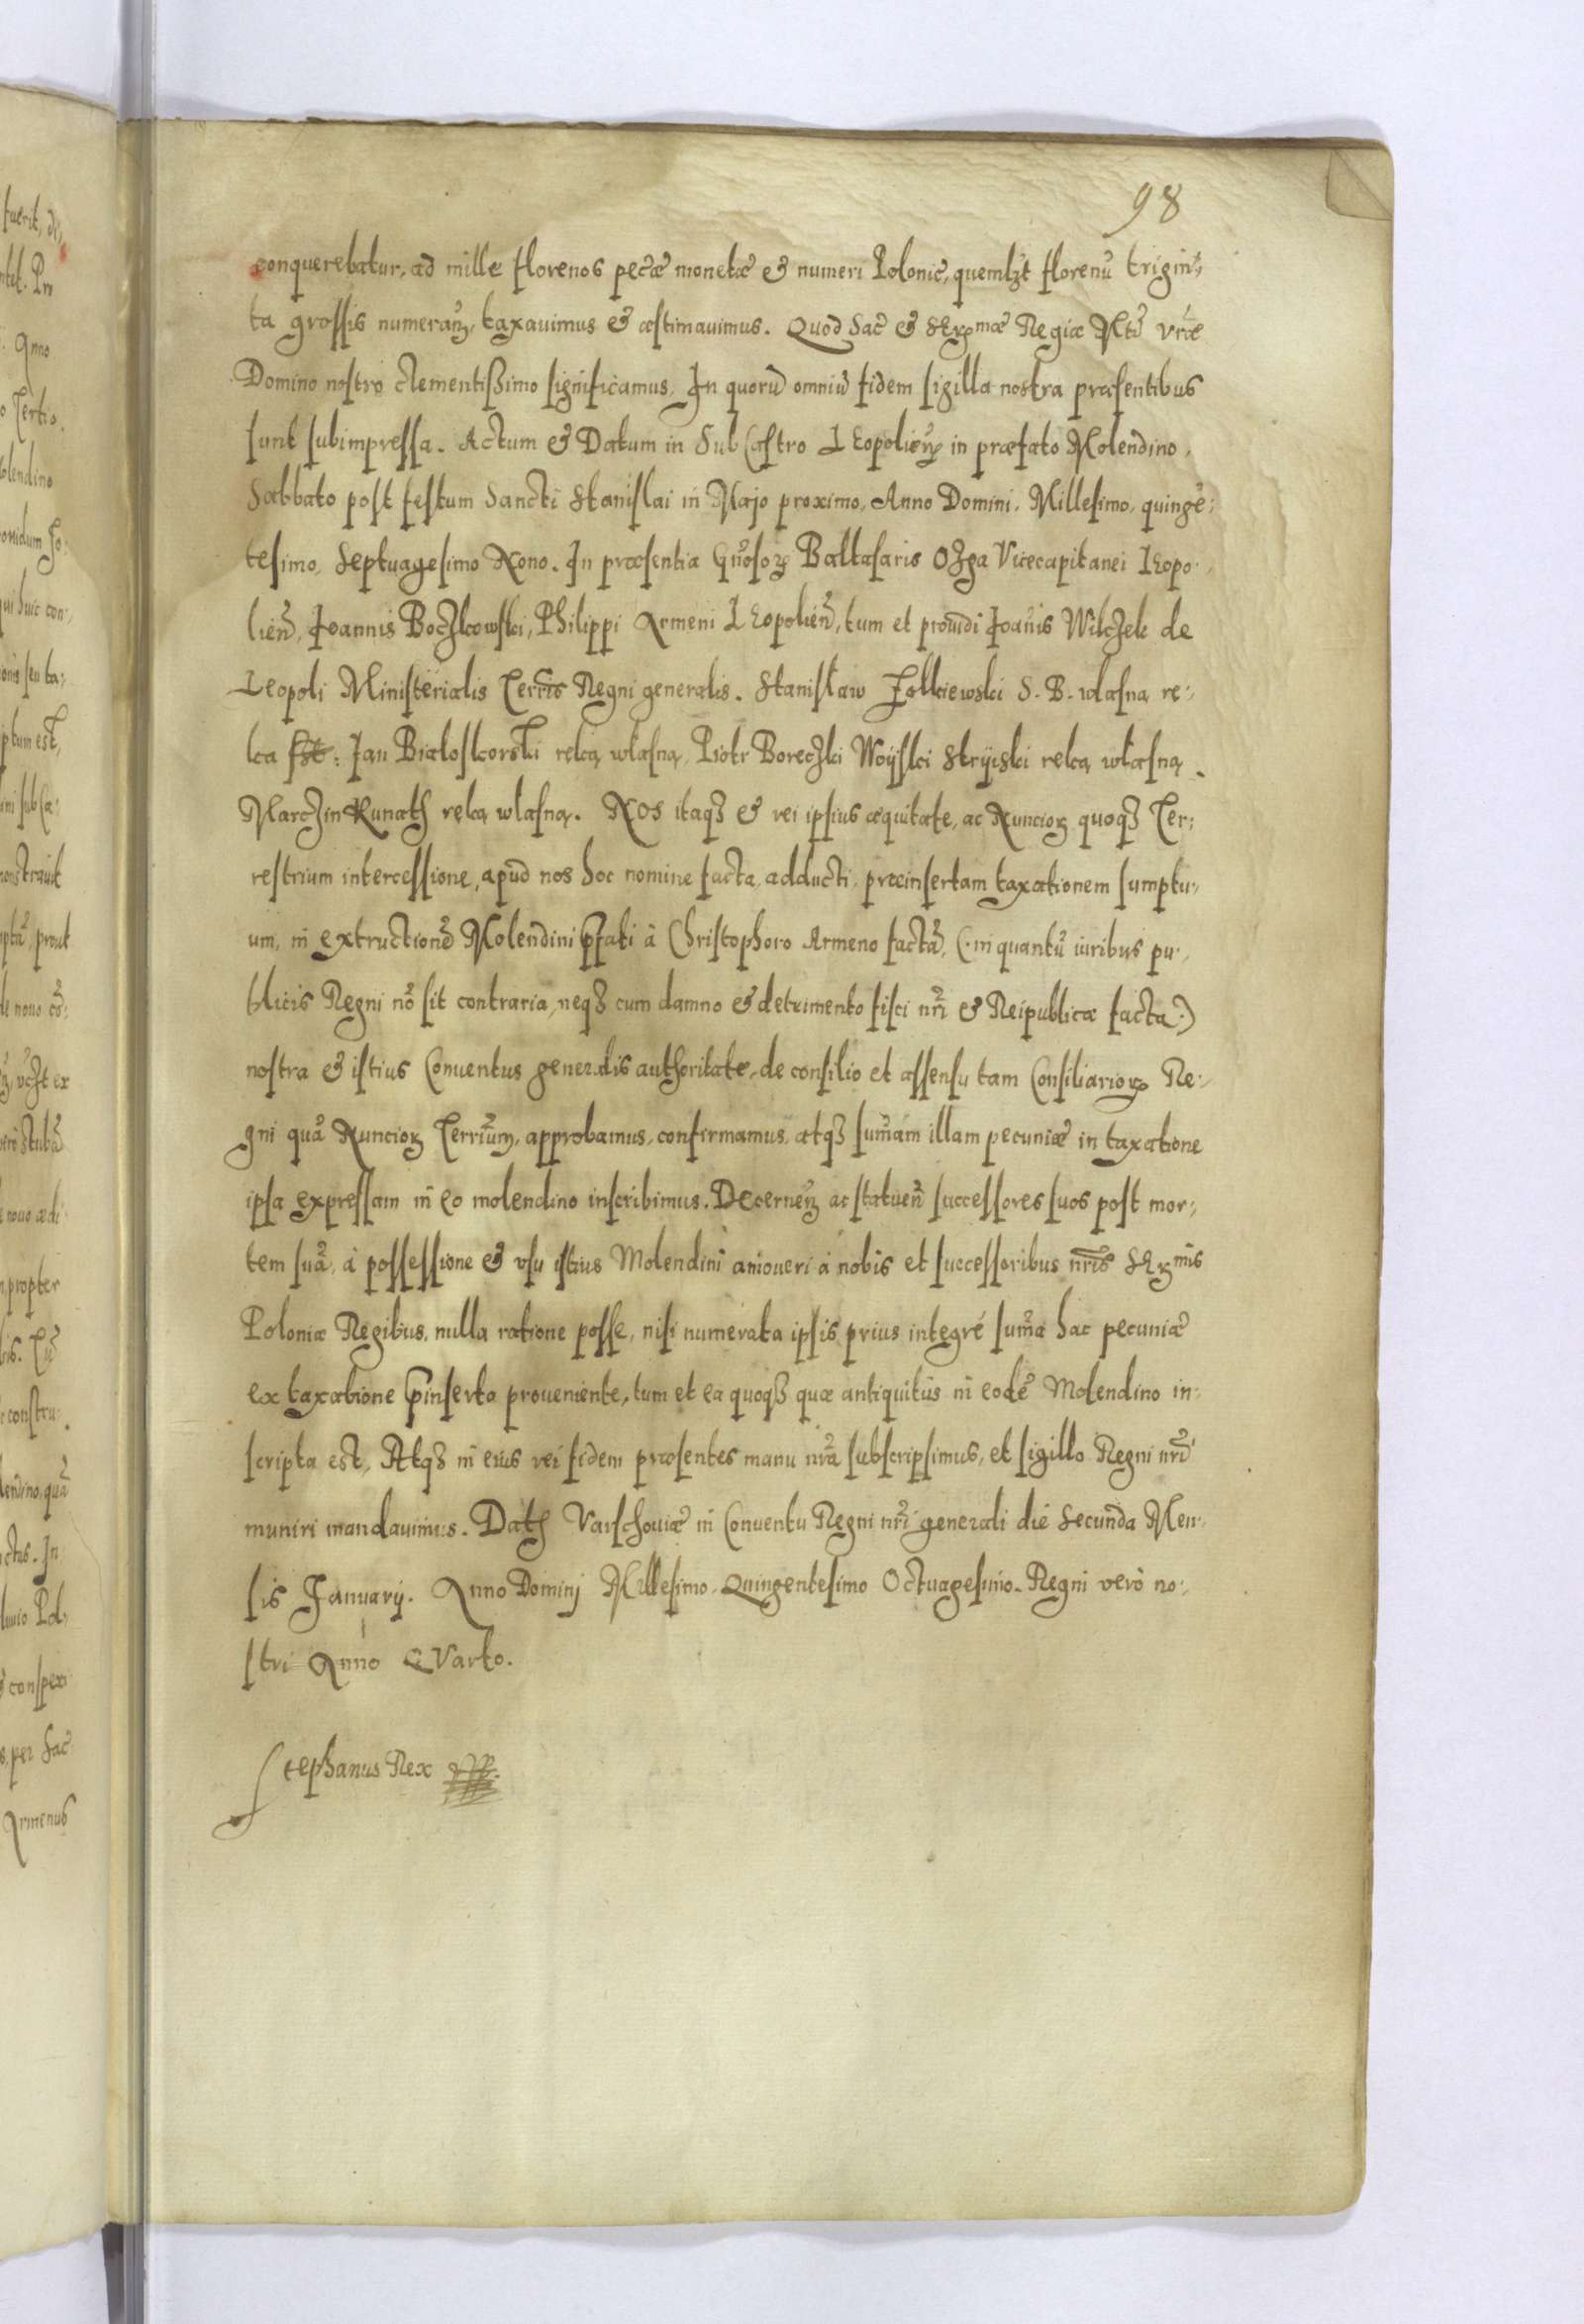 98
conquerebatur, ad mille florenos pecæ monetæ & numeri Polonic̃, quemlꝫt florenũ trigin⸗
ta grossis numeran̄, taxauimus & æstimauimus. Quod Sac̃ & Serᵐᵃᵉ Regiæ Mti vræ
Domino nostro clementißimo significamus. In quorũ omniũ fidem sigilla nostra præsentibus
sunt subimpressa. Actum & Datum in Sub Castro Leopolien̄ in præfato Molendino,
Sabbato post festum Sancti Stanislai in Majo proximo, Anno Domini, Millesimo, quingẽ⸗
tesimo, Septuagesimo Nono. In præsentia Gñosoꝝ Baltasaris Ożga Vicecapitanei Leopo⸗
lien̄, Joannis Boczkowski, Philippi Armeni Leopolien̄, tum et prouidi Joañis Wilczek de
Leopoli Ministerialis Terrris Regni generalis. Stanisław Zolkiewski S. B. wlasną re⸗
ka sst: Jan Białoskorski reką własną, Piotr Boreczki Woyski Stryiski reką własną.
Marczin Kunath reką własną. Nos itaqꝫ & rei ipsius æquitate, ac Nuncioꝝ quoqꝫ Ter⸗
restrium intercessione, apud nos hoc nomine facta, adducti, præinsertam taxationem sumptu⸗
um, in extructionẽ Molendini p̃fati à Christophoro Armeno factã, (in quantũ iuribus pu⸗
blicis Regni nõ sit contraria, neqꝫ cum damno & detrimento fisci nr̃i & Reipublicæ facta)
nostra & istius Conuentus generalis authoritate, de consilio et assensu tam Consiliarioꝝ Re⸗
gni quã Nuncioꝝ Terriũm, approbamus, confirmamus, atqꝫ sum̃am illam pecuniæ in taxatione
ipsa expressam in eo molendino inscribimus. Decernen̄ ac statuen̄ successores suos post mor⸗
tem suã, à possessione & vsu istius Molendini amoueri à nobis et successoribus nr̃is Serᵐⁱˢ
Poloniæ Regibus, nulla ratione posse, nisi numerata ipsis prius integré sum̃a hac pecuniæ
ex taxatione p̃inserta proueniente, tum et ea quoqꝫ quæ antiquitùs in eodẽ Molendino in⸗
scripta est, Atqꝫ in eius rei fidem præsentes manu nr̃a subscripsimus, et sigillo Regni nr̃i
muniri mandauimus. Dath Varschouiæ in Conuentu Regni nr̃i generali die Secunda Men⸗
sis Januarij. Anno Dominj Millesimo, Quingentesimo Octuagesimo. Regni verò no⸗
stri Anno QVarto.
Stephanus Rex